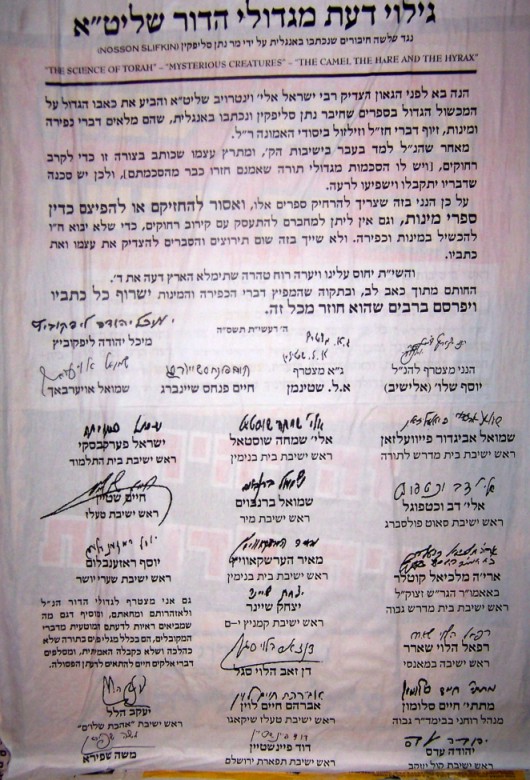 גילוי דעת מגדולי הדור שליט"א
נגד שלשה חיבורים שנכתבו באנגלית על ידי מר נתן סליפקין (NOSSON SLIFKIN)
"THE SCIENCE OF TORAH" – "MYSTERIOUS CREATURES" – "THE CAMEL THE HARE AND THE HYRAX"
הנה בא לפני הגאון הצדיק רבי ישראל אלי' וינטרויב שליט"א והביע את כאבו הגדול על
המכשול הגדול בספרים שחיבר נתן סליפקין ונכתבו באנגלית, שהם מלאים דברי כפירה
ומינות, זיוף דברי חז"ל וזילזול ביסודי האמונה ר"ל.
מאחר שהנ"ל למד בעבר בישיבות הק', ומתרץ עצמו שכותב בצורה זו כדי לקרב
רחוקים, [ויש לו הסכמות מגדולי תורה שאמנם חזרו כבר מהסכמתם], ולכן יש סכנה
שדבריו יתקבלו וישפיעו לרעה.
על כן הנני בזה שצריך להרחיק ספרים אלו, ואסור להחזיקם או להפיצם כדין
ספרי מינות, וגם אין ליתן למחברם להתעסק עם קירוב רחוקים, כדי שלא יבוא ח"ו
להכשיל במינות וכפירה. ולא שייך בזה שום תירוצים והסברים להצדיק את עצמו ואת
כתביו.
והשי"ת יחוס עלינו ויערה רוח טהרה שתימלא הארץ דעה את ד'.
החותם מתוך כאב לב, ובתקוה שהמפיץ דברי הכפירה והמינות ישרוף כל כתביו
ויפרסם ברבים שהוא חוזר מכל זה.
ה' תשס"ה
מיכל יהודה ליפקוביץ
הנני מצטרף להנ"ל
יוסף שלו' (אלישיב)
ג"א מצטרף
א.ל. שטינמן
חיים פנחס שיינברג
שמואל אויערבאך
שמואל אביגדור פייוועלזאן
ראש ישיבת בית מדרש לתורה
אלי' שמחה שוסטאל
ראש ישיבת בית בנימין
ישראל פערקבסקי
ראש ישיבת בית התלמוד
אלי' דב וכטפוגל
ראש ישיבת סאוט פולסברג
שמואל ברנבוים
ראש ישיבת מיר
חיים שטיין
ראש ישיבת טעלז
ארי' מלכיאל קוטלר
באאמו"ר הגר"ש זצוק"ל
ראש ישיבת בית מדרש גבוה
מאיר הערשקאוויץ
ראש ישיבת בית בנימין
יוסף ראזענבלום
ראש ישיבת שערי יושר
יצחק שיינר
ראש ישיבת קמניץ י-ם
רפאל הלוי שארר
ראש ישיבה במאנסי
דן זאב הלוי סגל
גם אני מצטרף לגדולי הדור הנ"ל
ולאזהרותם ומחאתם, ומוסיף דגם מה
שמביאים ראיות לדעתם ומוטעית מדברי
המקובלים, הם בכלל מגלי פנים בתורה שלא
כהלכה ושלא כקבלה האמיתית, ומסלפים
דברי אלקים חיים להתאים לרעתן הפסולה.
יעקב הלל
ראש ישיבת "אהבת שלום"
משה שפירא
מתתי' חיים סלומון
מנהל רוחני בבימד"ר גבוה
אברהם חיים לוין
ראש ישיבת טעלז שיקאגו
דוד פיינשטיין
ראש ישיבת תפארת ירושלם
יהודה עדס
ראש ישיבת קול יעקב